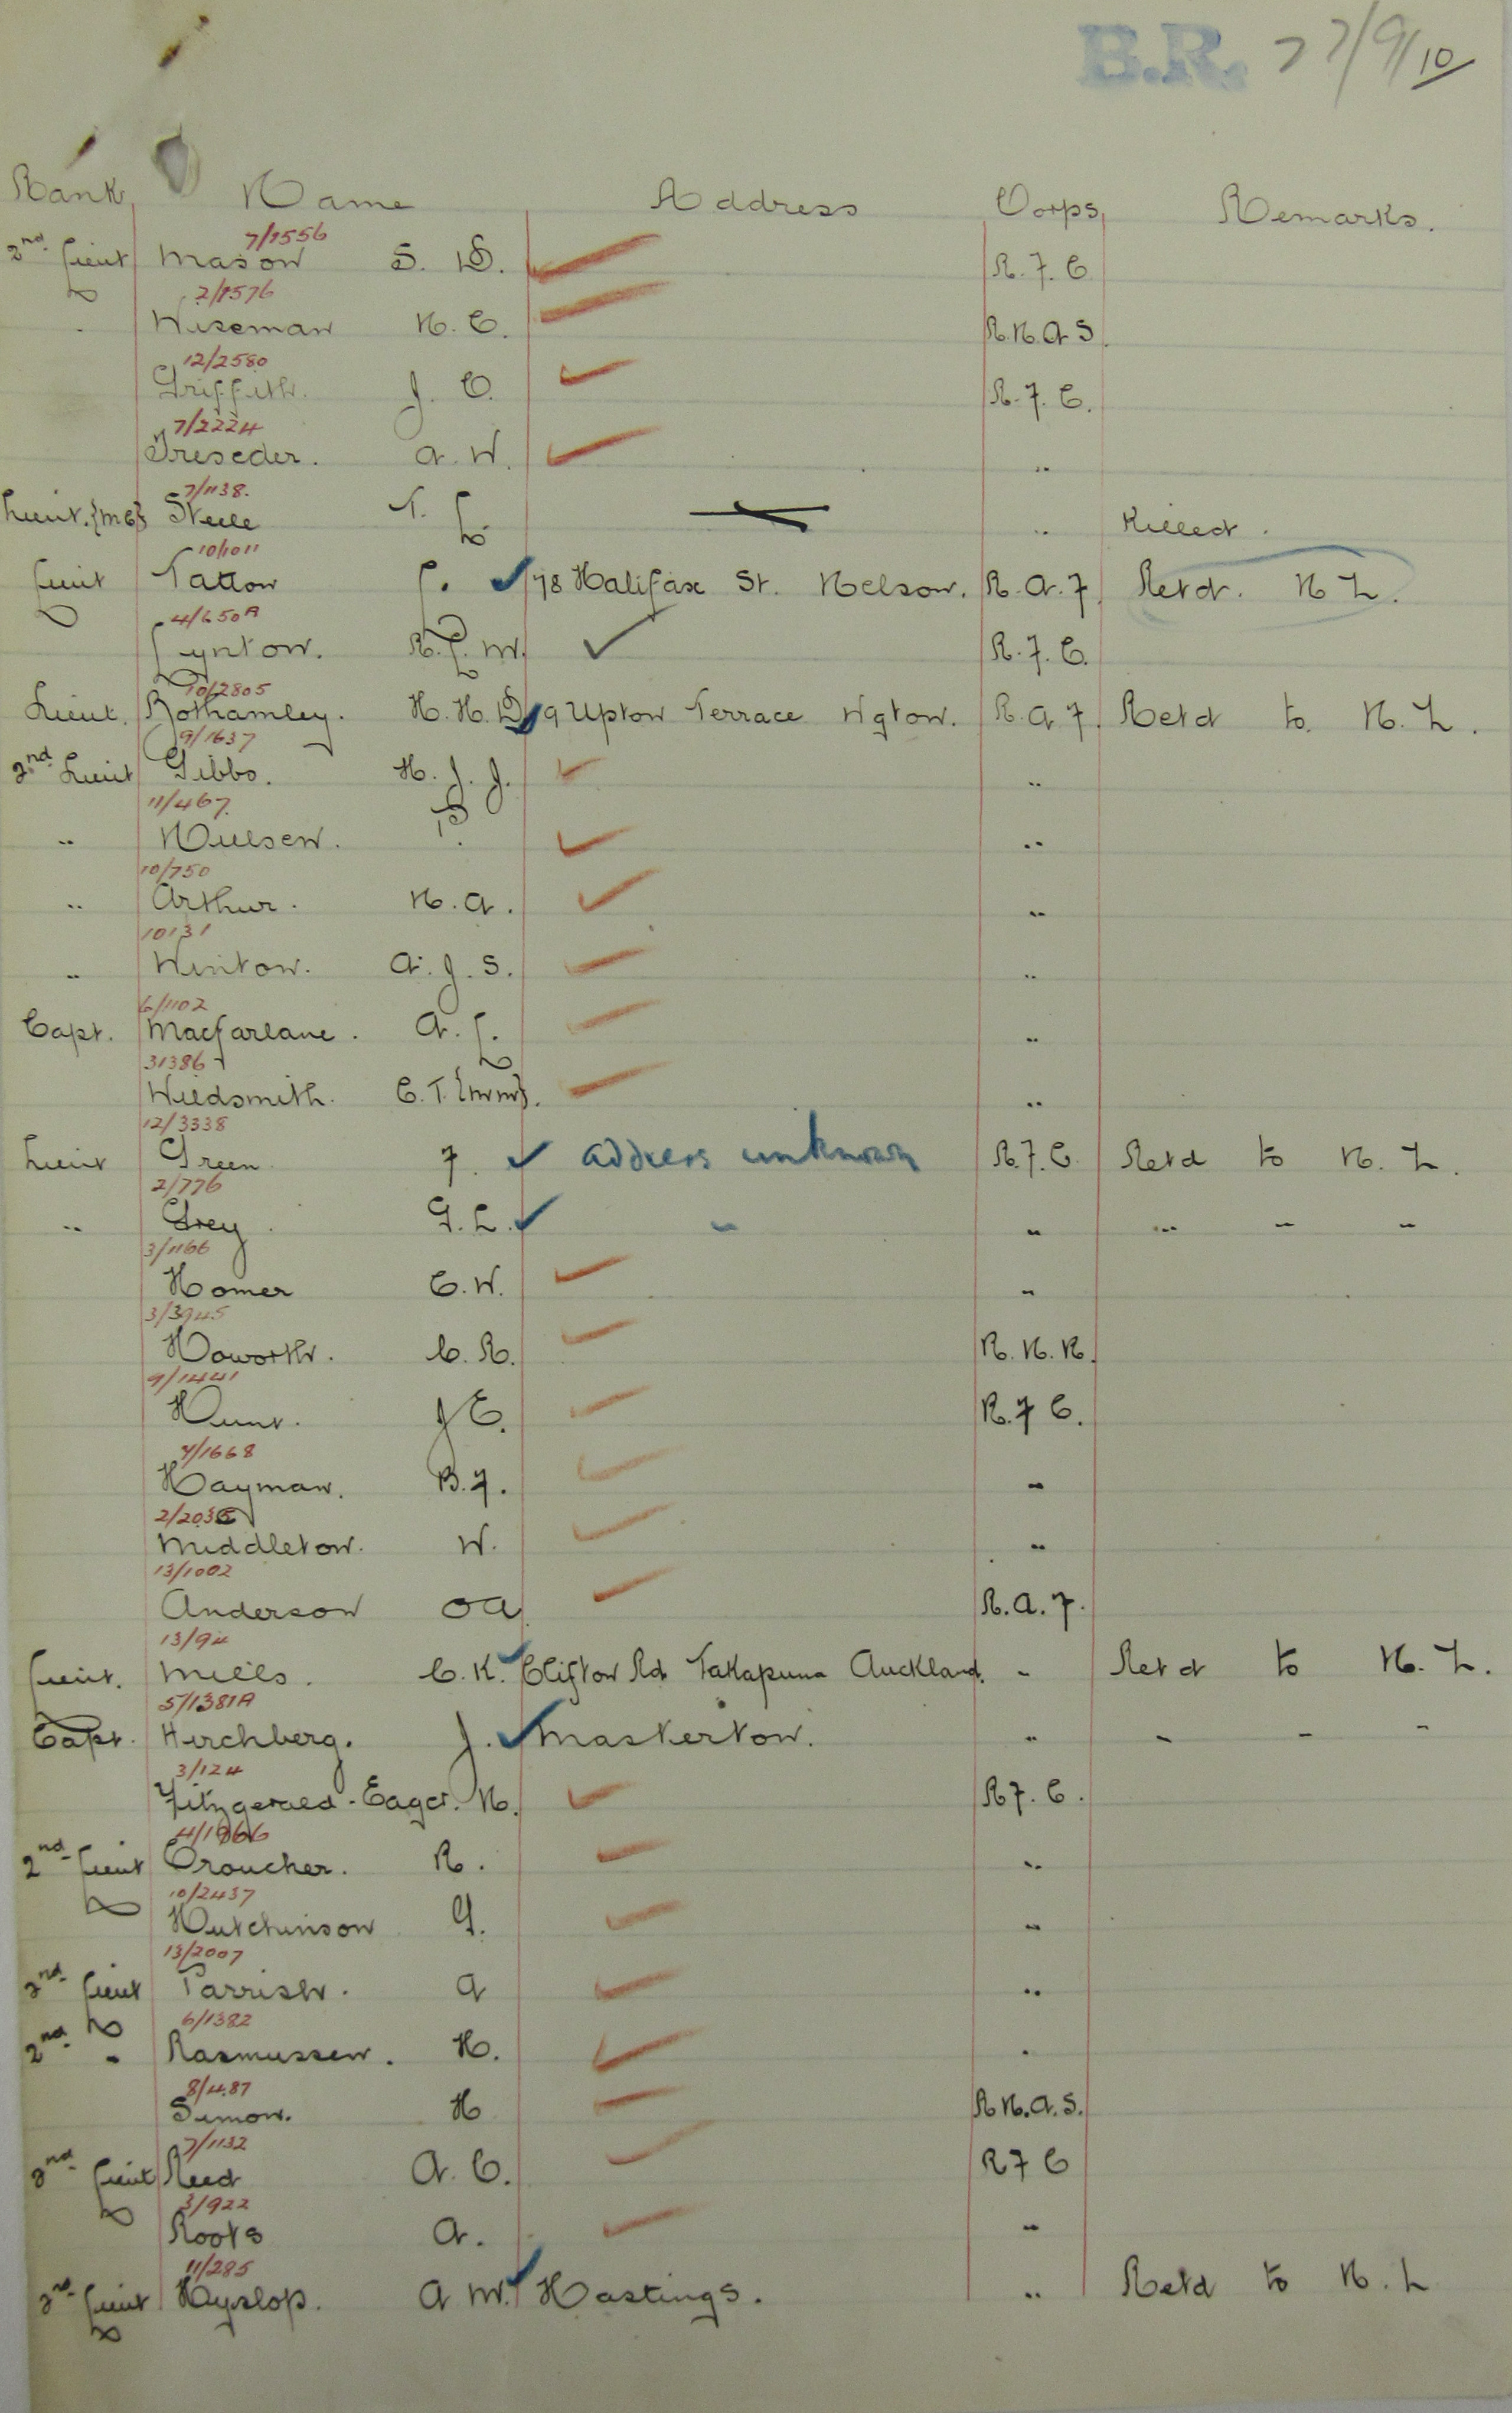 B.R. 27/9/10
Rank Name Address Corps Remarks.
7/1556
2nd Lieut Mason S. D. R. F. C
2/1576
Wiseman N. C. R.N.A.S.
12/2580
Griffith. J. C. R. F. C.
7/2224
Treseder. A. W. "
7/1138.
Lieut. {MC} Steele T. L. " Killed.
10/1011
Lieut Tatton L. 78 Halifax St. Nelson. R. A. F. Retd. N Z.
4/650A
Lynton. R. L. M. R. F. C.
10/2805
Lieut. Bothamley. H. H. D. 9 Upton Terrace Wgton. R. A. F. Retd to N. Z.
9/1637
2nd Lieut Gibbs. H. J. J. "
11/467.
" Nielsen. P. "
10/750
" Arthur. N. A. "
10131
" Winton. A. J. S. "
6/1102
Capt. Macfarlane. A. L. "
31386
Wildsmith. C. T. {MM}. "
12/3338
Lieut Green F. address unknown R.F.C. Retd to N. Z.
2/776
" Grey. G. L. " " " " "
3/1166
Homer C. W. "
3/3945
Howorth. C. R. R. N. R.
9/1441
Hunt. J C. R. F C.
7/1668
Hayman. B. F. "
2/2035
Middleton. W. "
13/1002
Anderson O A R. A. F.
13/94
Lieut. Mills. C. K. Clifton Rd Takapuna Auckland. " Retd to N. Z.
5/1381A
Capt. Hirchberg. J. Masterton. " " " "
3/124
Fitzgerald-Eager. N. R F. C.
4/1866
2nd Lieut Croucher. R. "
10/2437
Hutchinson G. "
13/2007
2nd Lieut Parrish. A "
6/1382
2nd " Rasmussen. H. "
8/487
Simon. H R N. A. S.
7/1132
2nd Lieut Reed A. C. R F C
3/922
Roots A. "
11/285
2nd Lieut Hyslop. A M. Hastings. " Retd to N. Z